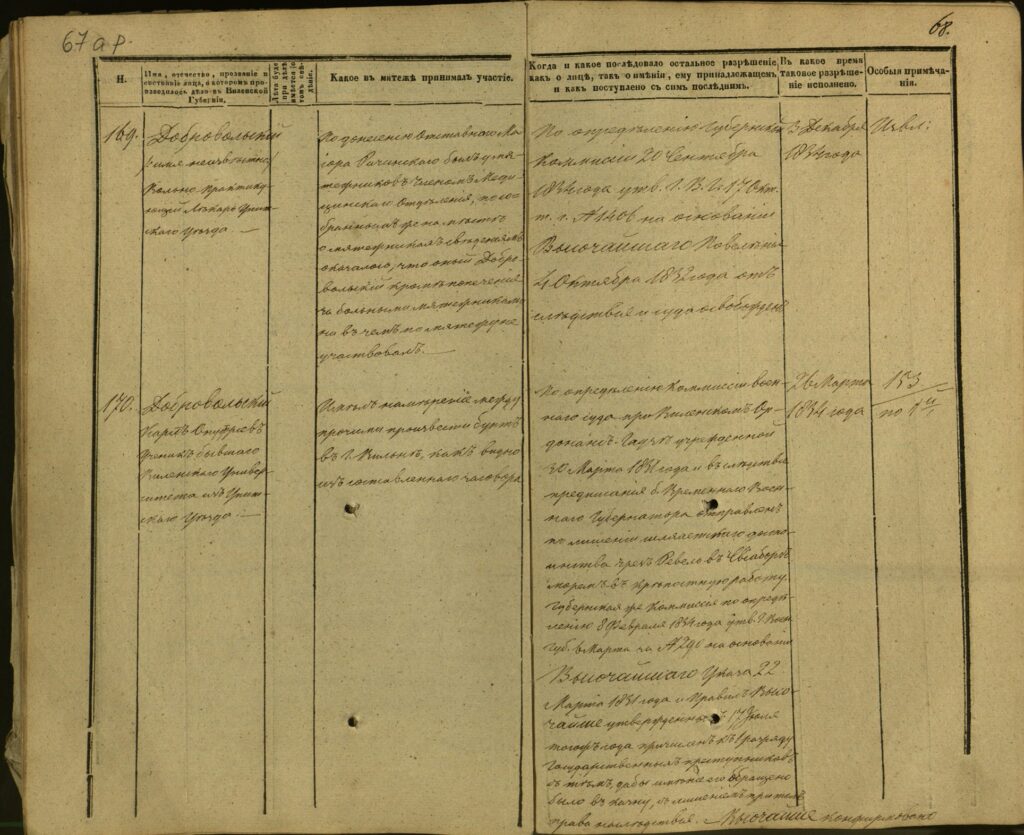 67 а р.
68.
Н.
Имя, отчество, прозваніе и
состояніе лица, о которомъ про-
изводилось дѣло въ Виленской
Губерніи.
Какое въ мятежѣ принималъ участіе.
Когда и какое послѣдовало остальное разрѣшеніе,
какъ о лицѣ, такъ о имѣніи, ему принадлежащемъ
и какъ поступлено съ симъ послѣднимъ.
Въ какое время
таковое разрѣше-
ніе исполнено.
Особыя примѣча-
нія.
169.
Добровольскій
(имя неизвѣстно)
Вольно-практику-
ющій Лѣкарь Упит-
скаго Уѣзда
По донесенію Отставнаго Ма-
іора былъ у мя-
тежниковъ Членомъ Меди-
цинскаго Отдѣленія, по со-
браннымъ же на мѣстѣ
свѣденіямъ
оказалось, что оный Добро-
вольскій кромѣ попеченія
за больными мятежниками
ни въ чемъ по мятежу не
участвовалъ.
По опредѣленію Губернской
Коммисіи 20 Сентября
1834 года утв. Г. В. Г. 17 Окт.
т. г. № 1406 на основаніи
Высочайшаго Повелѣнія
4 Октября 1832 года отъ
слѣдствія и суда освобожденъ
3 Декабря
1834 года
170.
Добровольскій
Карлъ Онуфріевъ
Ученикъ бывшаго
Виленскаго Универ-
ситета изъ Упит-
скаго Уѣзда.
Имѣлъ намѣреніе между
прочими произвести бунтъ
въ г. Вильнѣ, какъ видно
изъ составленнаго заговора
По опредѣленію Коммисіи воен-
наго суда при Виленскомъ Ор-
донансъ-Гаузѣ учрежденной
30 Марта 1831 года и въ слѣдствіе
предписанія б. Временнаго Воен-
наго Губернатора отправленъ
по лишеніи шляхетскаго досто-
инства чрезъ Ревель въ Свеаборгъ
моремъ въ крѣпостную работу.
Губернская же Коммисія по опредѣ-
ленію 8 Февраля 1834 года утв. Г. Воен.
Губ. 6 Марта за № 296 на основаніи
Высочайшаго Указа 22
Марта 1831 года и Правилъ Высо-
чайше утвержденныхъ 17 Іюля
того жъ года причисленъ къ 1 разряду
Государственныхъ преступниковъ
съ тѣмъ, дабы имѣніе его обращено
было въ казну, съ лишеніемъ при томъ
права наслѣдствія. Высочайше конфирмовано
26 Марта
1834 года
153
по 1й